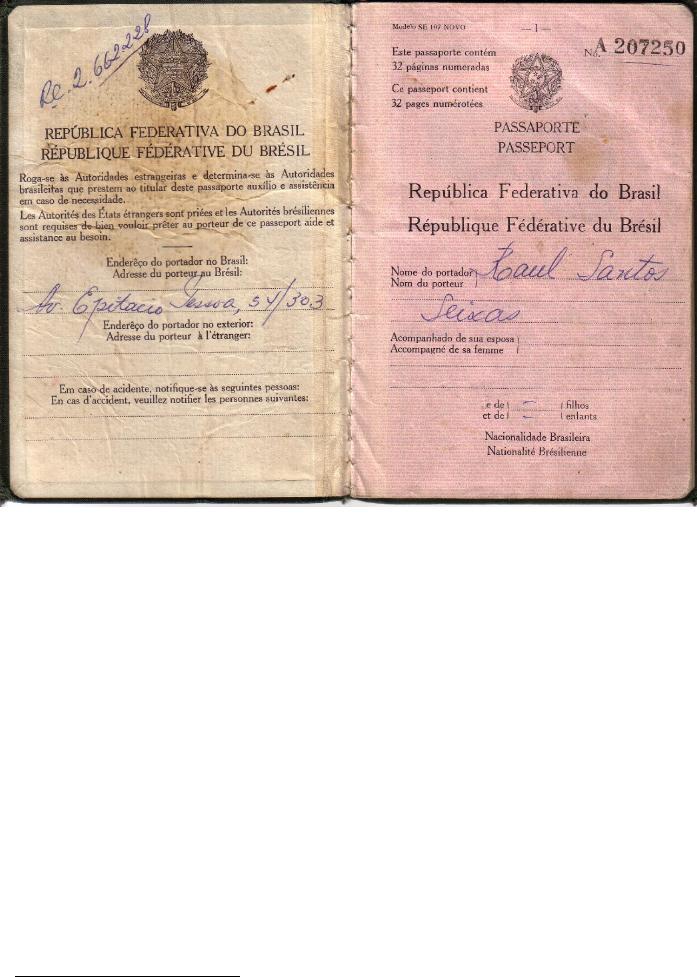 RC. 2.662228
REPÚBLICA FEDERATIVA DO BRASIL
RÉPUBLIQUE FÉDÉRATIVE DU BRÉSIL
Roga-se às Autoridades estrangeiras e determina-se às Autoridades
brasileiras que prestem ao titular deste passaporte auxílio e assistência
em caso de necessidade.
Les Autorités des États étrangers sont priées et les Autorités brésiliennes
sont requises de bien vouloir prêter au porteur de ce passeport aide et
assistance au besoin.
Enderêço do portador no Brasil:
Adresse du porteur au Brésil:
Av. Epitacio Pessoa, 54/303
Enderêço do portador no exterior:
Adresse du porteur à l'étranger:
Em caso de acidente, notifique-se às seguintes pessoas:
En cas d'accident, veuillez notifier les personnes suivantes:
Modelo SE 107 NOVO
— 1 —
Este passaporte contém
32 páginas numeradas
No. A 207250
Ce passeport contient
32 pages numérotées
PASSAPORTE
PASSEPORT
República Federativa do Brasil
République Fédérative du Brésil
Nome do portador
Nom du porteur
Raul Santos
Seixas
Acompanhado de sua esposa
Accompagné de sa femme
e de – filhos
et de – enfants
Nacionalidade Brasileira
Nationalité Brésilienne